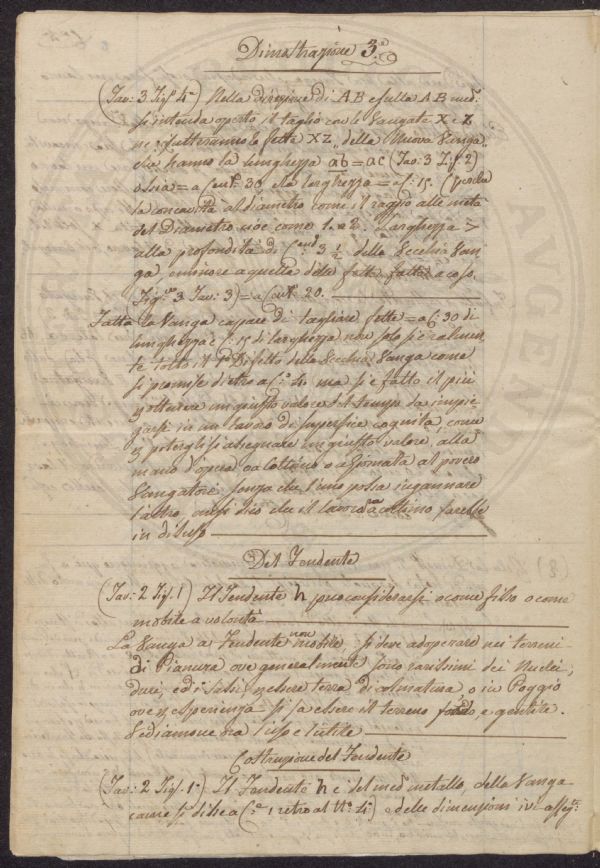 Dimostrazione 3.a
(Tav: 3 Fig.a 4.a) Nella direzione di AB e sulla AB med.
s'intenda aperto il taglio con le Vangate X e Z
ne risulteranno le fette XZ,, della Nuova Vanga
che hanno la lunghezza ab = ac (Tav: 3 Fig. 2)
ossia = a Cent. 30 e la larghezza = a C: 15.
la concavità al diametro come il raggio alle metà
del Diametro cioè come 1. a 2. Larghezza >
alla profondità di C.enti 3 1/2 della Vecchia Van
ga, e minore a quella delle fatte a caso.
Fig.a 3 Tav: 3) = a Cent. 20.
Fatta la Vanga capace di tagliare fette = a C. 30 di
lunghezza e C: 15 di larghezza non solo si è realmen
te tolto il 1.o Difetto della Vecchia Vanga come
si promise dietro a C. ma si è fatto il più
d'ottenere un giusto valore del tempo da impie
garsi in un lavoro di superficie cognita, come
di potergli si assegnare un giusto valore, alla
mano d'opera o a Cottimo o a Giornata al povero
Vangatore senza che l'uno possa ingannare
l'altro, onde dico che il lavoro a cottimo sarebbe
in disuso
Del Fendente
(Tav: 2 Fig. 1) Il Fendente h può considerarsi o come fisso o come
mobile a volontà
La Vanga a Fendente non mobile, si deve adoperare nei terreni
di Pianura ove generalmente sono rarissimi dei Nuclei
duri, e di sassi, nelle terre d'Almatura, o in Poggio
ove d'esperienza si sa essere il terreno e gentile.
Vediamone ora l'uso e l'utile
Costruzione del Fendente
(Tav: 2 Fig. 1.a) Il Fendente h è del med.o metallo della Vanga
come si disse a C. 1 retro al N.o 4.o e delle dimensioni ivi asseg.te